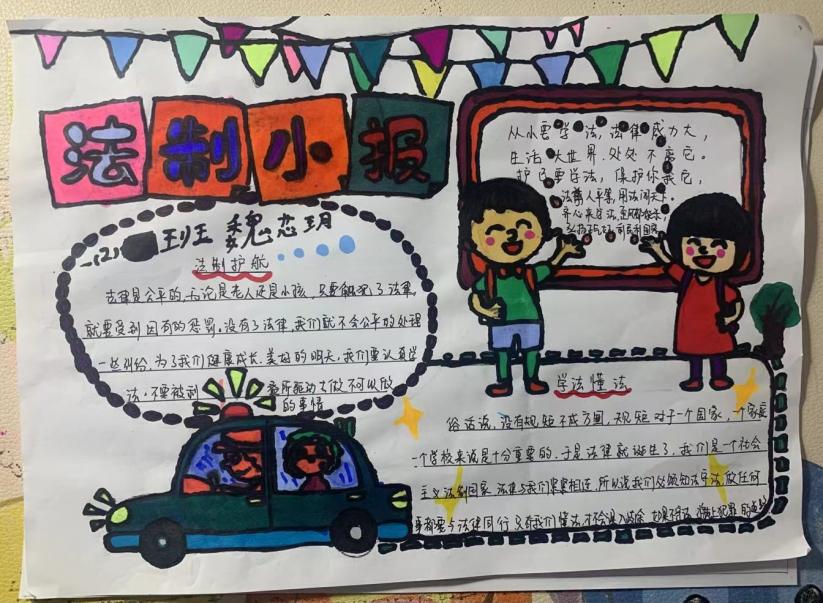 法制小报
一(2) 班 魏芯玥
法制护航
法律是公平的,无论是老人还是小孩,只要触犯了法律,
就要受到因有的惩罚。没有了法律,我们就不会公平的处理
一些纠纷,为了我们健康成长、美好的明天,我们要认真学
法,不要被利 所驱动去做不可以做
的事情
从小要学法,法律威力大,
生活大世界,处处不离它。
护己要学法,保护你我它,
法 人平等,用法闯天下。
齐心来学法,
利国
学法懂法
俗话说,没有规矩不成方圆,规矩对于一个国家,一个家庭
一个学校来说是十分重要的,于是法律就诞生了,我们是一个社会
主义法制国家 法律与我们紧紧相连,所以说我们必须知法守法,做任何
事都要与法律同行 只有我们懂法,才不会误入 犯罪的